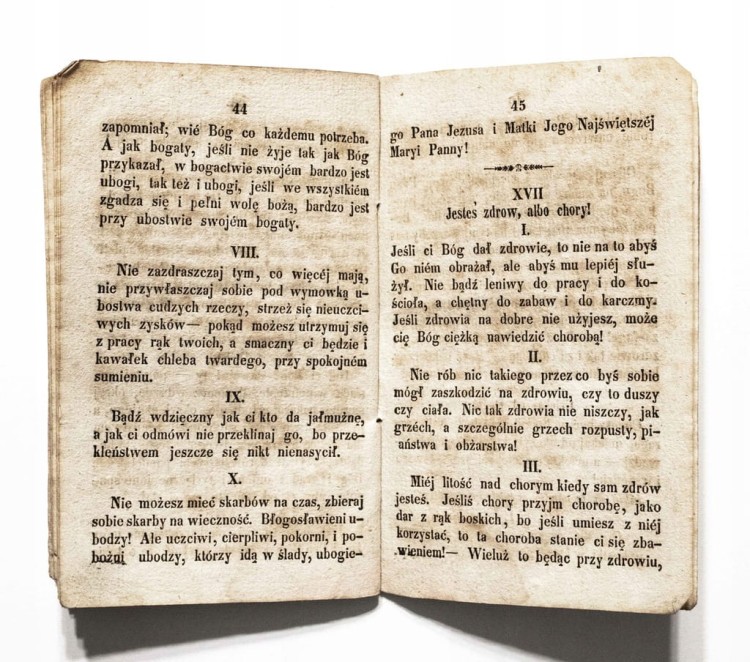 44
zapomniał; wié Bóg co każdemu potrzeba.
A jak bogaty, jeśli nie żyje tak jak Bóg
przykazał, w bogactwie swojém bardzo jest
ubogi, tak też i ubogi, jeśli we wszystkiém
zgadza się i pełni wolę bożą, bardzo jest
przy ubostwie swojém bogaty.
VIII.
Nie zazdraszczaj tym, co więcéj mają,
nie przywłaszczaj sobie pod wymowką u-
bostwa cudzych rzeczy, strzeż się nieuczci-
wych zysków— pokąd możesz utrzymuj się
z pracy rąk twoich, a smaczny ci będzie i
kawałek chleba twardego, przy spokojném
sumieniu.
IX.
Bądź wdzięczny jak ci kto da jałmużnę,
a jak ci odmówi nie przeklinaj go, bo prze-
kleństwem jeszcze się nikt nienasycił.
X.
Nie możesz mieć skarbów na czas, zbieraj
sobie skarby na wieczność. Błogosławieni u-
bodzy! Ale uczciwi, cierpliwi, pokorni, i po-
bożni ubodzy, którzy idą w ślady, ubogie-
45
go Pana Jezusa i Matki Jego Najświętszéj
Maryi Panny!
XVII
Jesteś zdrow, albo chory!
I.
Jeśli ci Bóg dał zdrowie, to nie na to abyś
Go niém obrażał, ale abyś mu lepiéj słu-
żył. Nie bądź leniwy do pracy i do ko-
ścioła, a chętny do zabaw i do karczmy.
Jeśli zdrowia na dobre nie użyjesz, może
cię Bóg ciężką nawiedzić chorobą!
II.
Nie rób nic takiego przez co byś sobie
mógł zaszkodzić na zdrowiu, czy to duszy
czy ciała. Nic tak zdrowia nie niszczy, jak
grzéch, a szczególnie grzech rozpusty, pi-
aństwa i obżarstwa!
III.
Miéj litość nad chorym kiedy sam zdrów
jesteś. Jeśliś chory przyjm chorobę, jako
dar z rąk boskich, bo jeśli umiesz z niéj
korzystać, to ta choroba stanie ci się zba-
wieniem!— Wieluż to będąc przy zdrowiu,